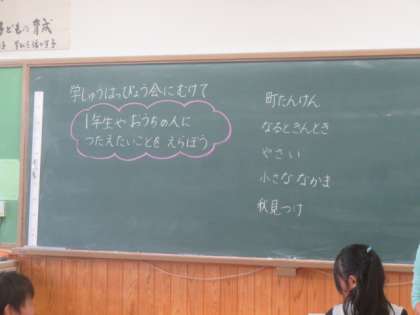 子どもの育成
学しゅうはっぴょう会にむけて
1年生や おうちの人に
つたえたいことを えらぼう
町たんけん
なるときんとき
やさい
小さな なかま
秋見つけ